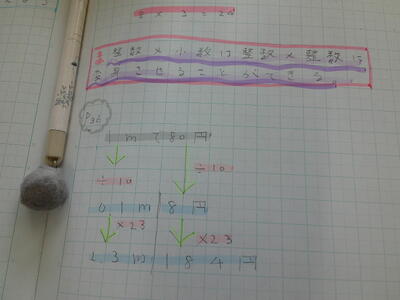 整数×小数は整数×整数に
ることができる
P36
1mで80円
÷10
÷10
0.1m 8円
×23 ×23
2.3m 184円